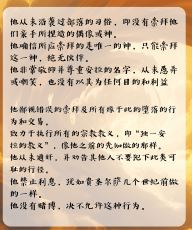 他从未沾袭过部落的习俗，即没有崇拜他
们亲手所捏造的偶像或神。
他确信所应崇拜的是唯一的神，只能崇拜
这一神，绝无伙伴。
他非常敬仰并尊重安拉的名字，从未愚弄
或嘲笑，也没有以其为任何目的和利益

他鄙视错误的崇拜及所有缘于此的堕落的行
为和交易。
致力于执行所有的宗教教义，即“独一安
拉的教义”，像他之前的先知做的那样。
他从未通奸，并劝告其他人不要犯下此类可
耻的行径。
他禁止利息，犹如费圣尔萨几个世纪前做
的一样。
他没有赌博，决不允许这种行为。